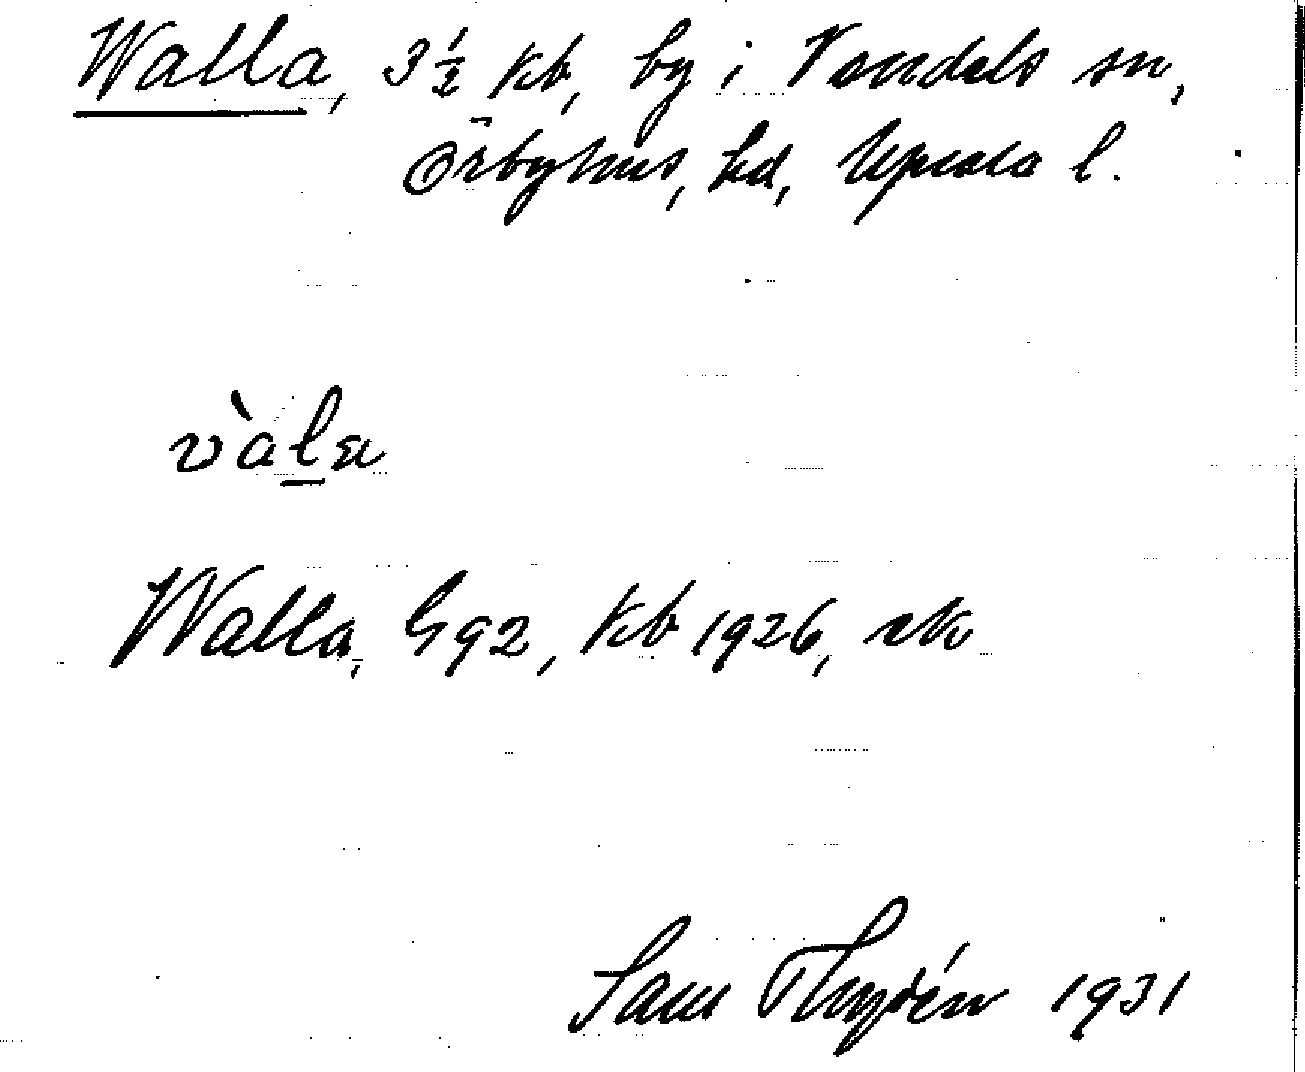 Walla, 3½ kb, by i Vendels sn,
Örbyhus, hd, Upsala l.
vàla
Walla, G92, kb 1926, sk
Sam Thydén 1931